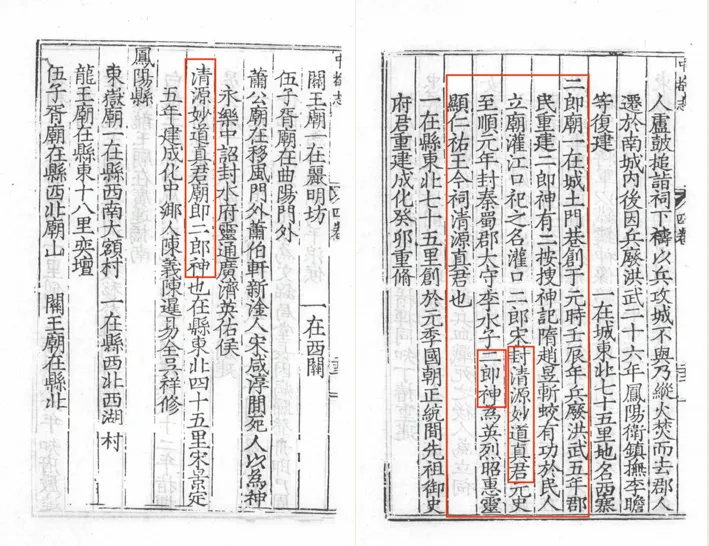 人廬鼓搥詣祠下禱以兵攻城不與乃縱火焚而去郡人
遷於南城內後因兵廢洪武二十六年鳳陽衛鎮撫李瞻
等復建 一在城東北七十五里地名西寨
二郎廟一在城土門巷創于元時壬辰年兵廢洪武五年郡
民重建二郎神有二按搜神記隋趙昱斬蛟有功於民人
立廟灌江口祀之名灌口二郎宋封清源妙道真君元史
至順元年封秦蜀郡太守李氷子二郎神為英烈昭惠靈
顯仁祐王今祠清源真君也
一在縣東北七十五里創於元季國朝正統間先祖御史
府君重建成化癸卯重脩
關王廟一在麗明坊 一在西關
伍子胥廟在曲陽門外
蕭公廟在移風門外蕭伯軒新淦人宋咸淳間死人以為神
永樂中詔封水府靈通廣濟英佑侯
清源妙道真君廟即二郎神也在縣東北四十五里宋景定
五年建成化中鄉人陳義陳暹易全吳祥修
鳳陽縣
東嶽廟一在縣西南大額村 一在縣西北西湖村
龍王廟在縣東十八里奕壇
伍子胥廟在縣西北廟山 關王廟在縣北